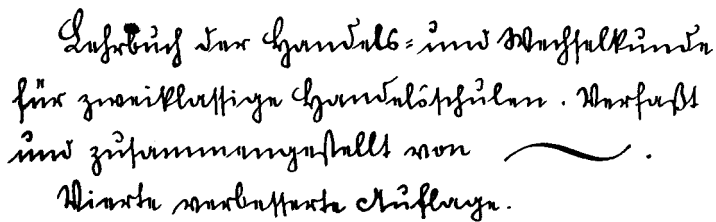 Lehrbuch der Handels- und Wechselkunde
für zweiklassige Handelsschulen. Verfaßt
und zusammengestellt von .
Vierte verbesserte Auflage.